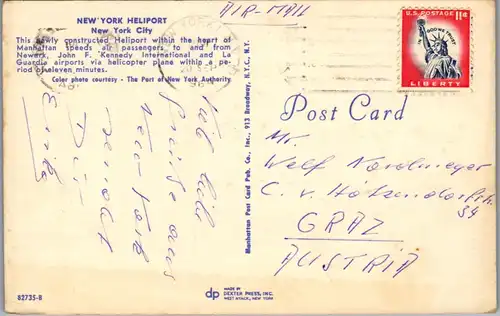 NEW YORK HELIPORT
New York City
This newly constructed Heliport within the heart of
Manhattan speeds air passengers to and from
Newark, John F. Kennedy International and La
Guardia airports via helicopter plane within a pe-
riod of eleven minutes.
Color photo courtesy - The Port of New York Authority
AIR-MAIL
U.S. POSTAGE 11¢
IN GOD WE TRUST
LIBERTY
Post Card
Manhattan Post Card Pub. Co., Inc., 913 Broadway, N.Y.C., N.Y.
Viele liebe
Grüsse aus
New York
sendet
Dir
Mr.
Wolf Nordmeyer
C. v. Hötzendorfstr.
34
GRAZ
AUSTRIA
82735-B
dp
MADE BY
DEXTER PRESS, INC.
WEST NYACK, NEW YORK